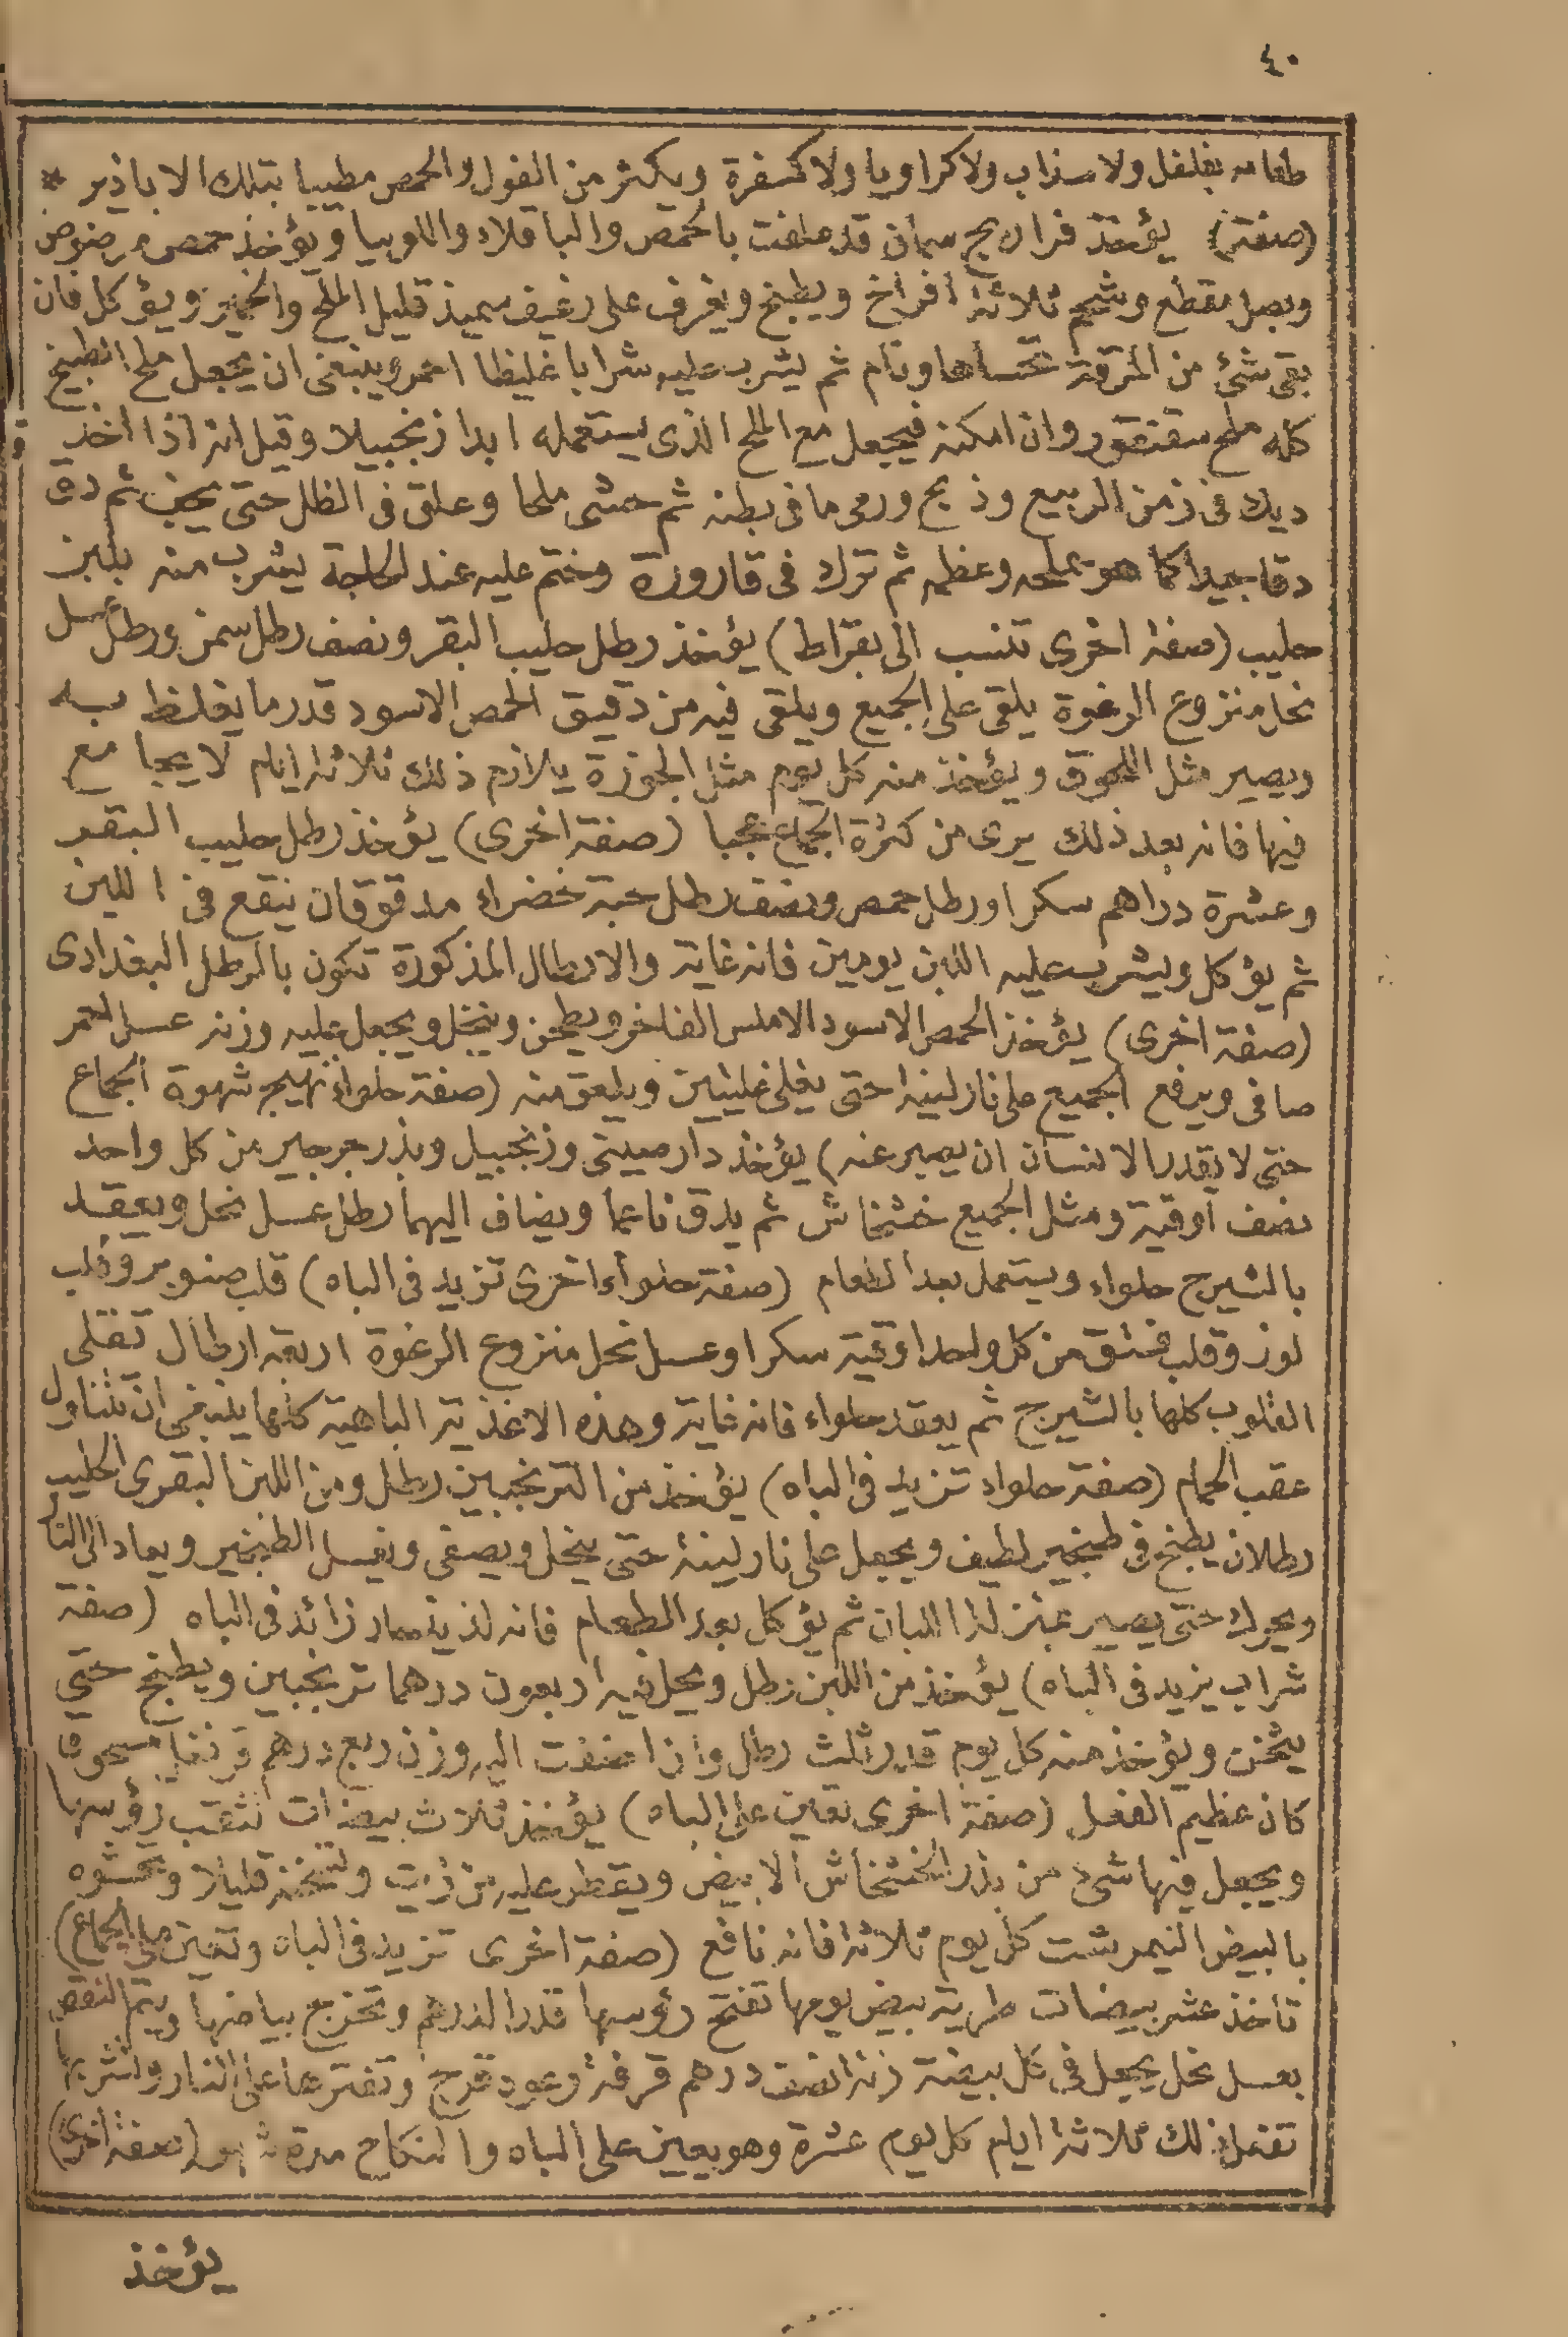 ٤٠
طعامه بفلفل ولا سذاب ولا كراويا ولا كسفرة ويكثر من الفول والحمص مطيبا بتلك الاباذير *
(صفة) يؤخذ فراريج سمان قد علفت بالحمص والباقلاء واللوبيا ويؤخذ حمص مرضوض
وبصل مقطع وشحم ثلاثة افراخ ويطبخ ويغرف على رغيف سميذ قليل الملح والخمير ويؤكل فان
بقى شئ من المرقة تحساها ونام ثم يشرب عليه شرابا غليظا احمر وينبغى ان يجعل ملح الطبيخ
كله ملح سقنقور وان امكنه فيجعل مع الملح الذى يستعمله ابدا زنجبيلا وقيل انه اذا اخذ
ديك فى زمن الربيع وذبح ورمى ما فى بطنه ثم حشى ملحا وعلق فى الظل حتى يجف ثم دق
دقا جيدا كما هو بملحه وعظمه ثم ترك فى قارورة وختم عليه عند الحاجة يشرب منه بلبن
حليب (صفة اخرى تنسب الى بقراط) يؤخذ رطل حليب البقر ونصف رطل سمن ورطل عسل
نحل منزوع الرغوة يلقى على الجميع ويلقى فيه من دقيق الحمص الاسود قدر ما يغلظ به
ويصير مثل اللعوق ويؤخذ منه كل يوم مثل الجوزة يلازم ذلك ثلاثة ايام لا يجامع
فيها فانه بعد ذلك يرى من كثرة الجماع عجبا (صفة اخرى) يؤخذ رطل حليب البقر
وعشرة دراهم سكر اورطل حمص ونصف رطل حبة خضراء مدقوقان ينقع فى اللبن
ثم يؤكل ويشرب عليه اللبن يومين فانه غاية والارطال المذكورة تكون بالرطل البغدادى
(صفة اخرى) يؤخذ الحمص الاسود الاملس الفاخر ويطحن وينخل ويجعل عليه وزنه عسل تمر
صافى ويرفع الجميع على نار لينة حتى يغلى غليتين ويلعق منه (صفة حلواء تهيج شهوة الجماع
حتى لا يقدر الانسان ان يصبر عنه) يؤخذ دارصينى وزنجبيل وبذر جرجير من كل واحد
نصف اوقية ومثل الجميع خشخاش ثم يدق ناعما ويضاف اليهما رطل عسل نحل ويعقد
بالشيرج حلواء ويستعمل بعد الطعام (صفة حلواء اخرى تزيد فى الباه) قلب صنوبر وقلب
لوز وقلب فستق من كل واحد اوقية سكرا وعسل نحل منزوع الرغوة اربعة ارطال تقلى
القلوب كلها بالشيرج ثم يعقد حلواء فانه غاية وهذه الاغذية الباهية كلها ينبغى ان تتناول
عقب الحمام (صفة حلواء تزيد فى الباه) يؤخذ من الترنجبين رطل ومن اللبن البقرى الحليب
رطلان يطبخ فى طنجير لطيف ويجعل على نار لينة حتى ينحل ويصفى ويغسل الطنجير ويعاد الى النار
ويحرك حتى يصير بمنزلة اللبان ثم يؤكل بعد الطعام فانه لذيذ زائد فى الباه (صفة
شراب يزيد فى الباه) يؤخذ من اللبن رطل ويحل فيه اربعون درهما ترنجبين ويطبخ حتى
يثخن ويؤخذ منه كل يوم قدر ثلث رطل واذا اضفت اليه وزن ربع درهم قرنفل مسحوق
كان عظيم الفعل (صفة اخرى تعين على الباه) يؤخذ ثلاث بيضات تثقب رؤسها
ويجعل فيها شئ من بذر الخشخاش الابيض ويقطر عليه من زيت وتسخن قليلا وتحشوه
بالبيض النيمرشت كل يوم ثلاثة فانه نافع (صفة اخرى تزيد فى الباه وتعين على الجماع)
تأخذ عشر بيضات طرية بيض يومها تفتح رؤسها قدر الدرهم وتخرج بياضها ويتم النقص
بعسل نحل يجعل فى كل بيضة زنة نصف درهم قرفة وعود قرح وتفترها على النار وتشربها
تفعل ذلك ثلاثة ايام كل يوم عشرة وهو يعين على الباه والنكاح مدة شهر (صفة اخرى)
يؤخذ